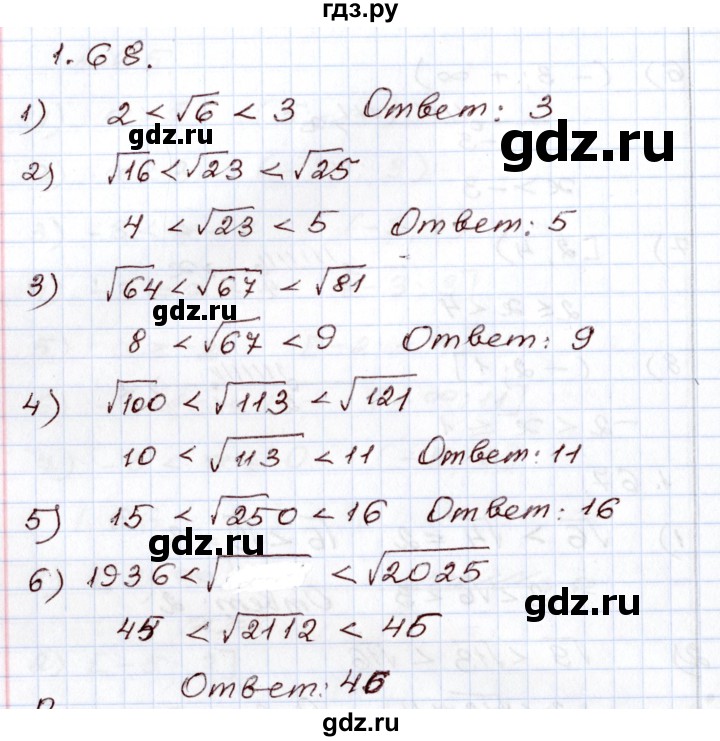 гдз.ру
1.68.
1) 2 < √6 < 3 Ответ: 3
gdz.ru gdz.ru
2) √16 < √23 < √25
gdz.ru
4 < √23 < 5 Ответ: 5
3) √64 < √67 < √81
gdz.ru
8 < √67 < 9 Ответ: 9
gdz.ru
4) √100 < √113 < √121
gdz.ru
10 < √113 < 11 Ответ: 11
5) 15 < √250 < 16 Ответ: 16
gdz.ru
6) 1936 < √ < √2025
gdz.ru gdz.ru
45 < √2112 < 46
Ответ: 46
gdz.ru